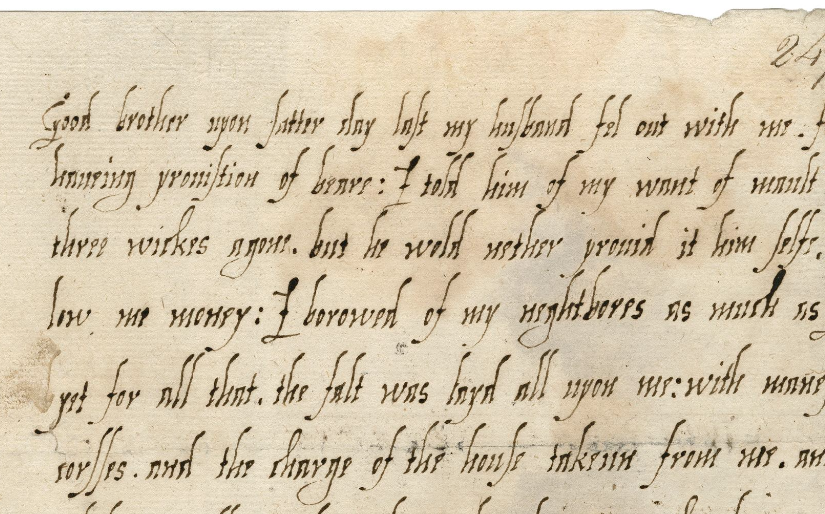 24
Good brother upon satter day last my husband fel out with me. f
haueing prouistion of beare: I told him of my want of mault
three wickes agone. but he wold nether prouid it him selfe.
low me money: I borowed of my neghtbores as much as
yet for all that. the falt was layd all upon me: with many
corsses. and the charge of the house takenn from me. an